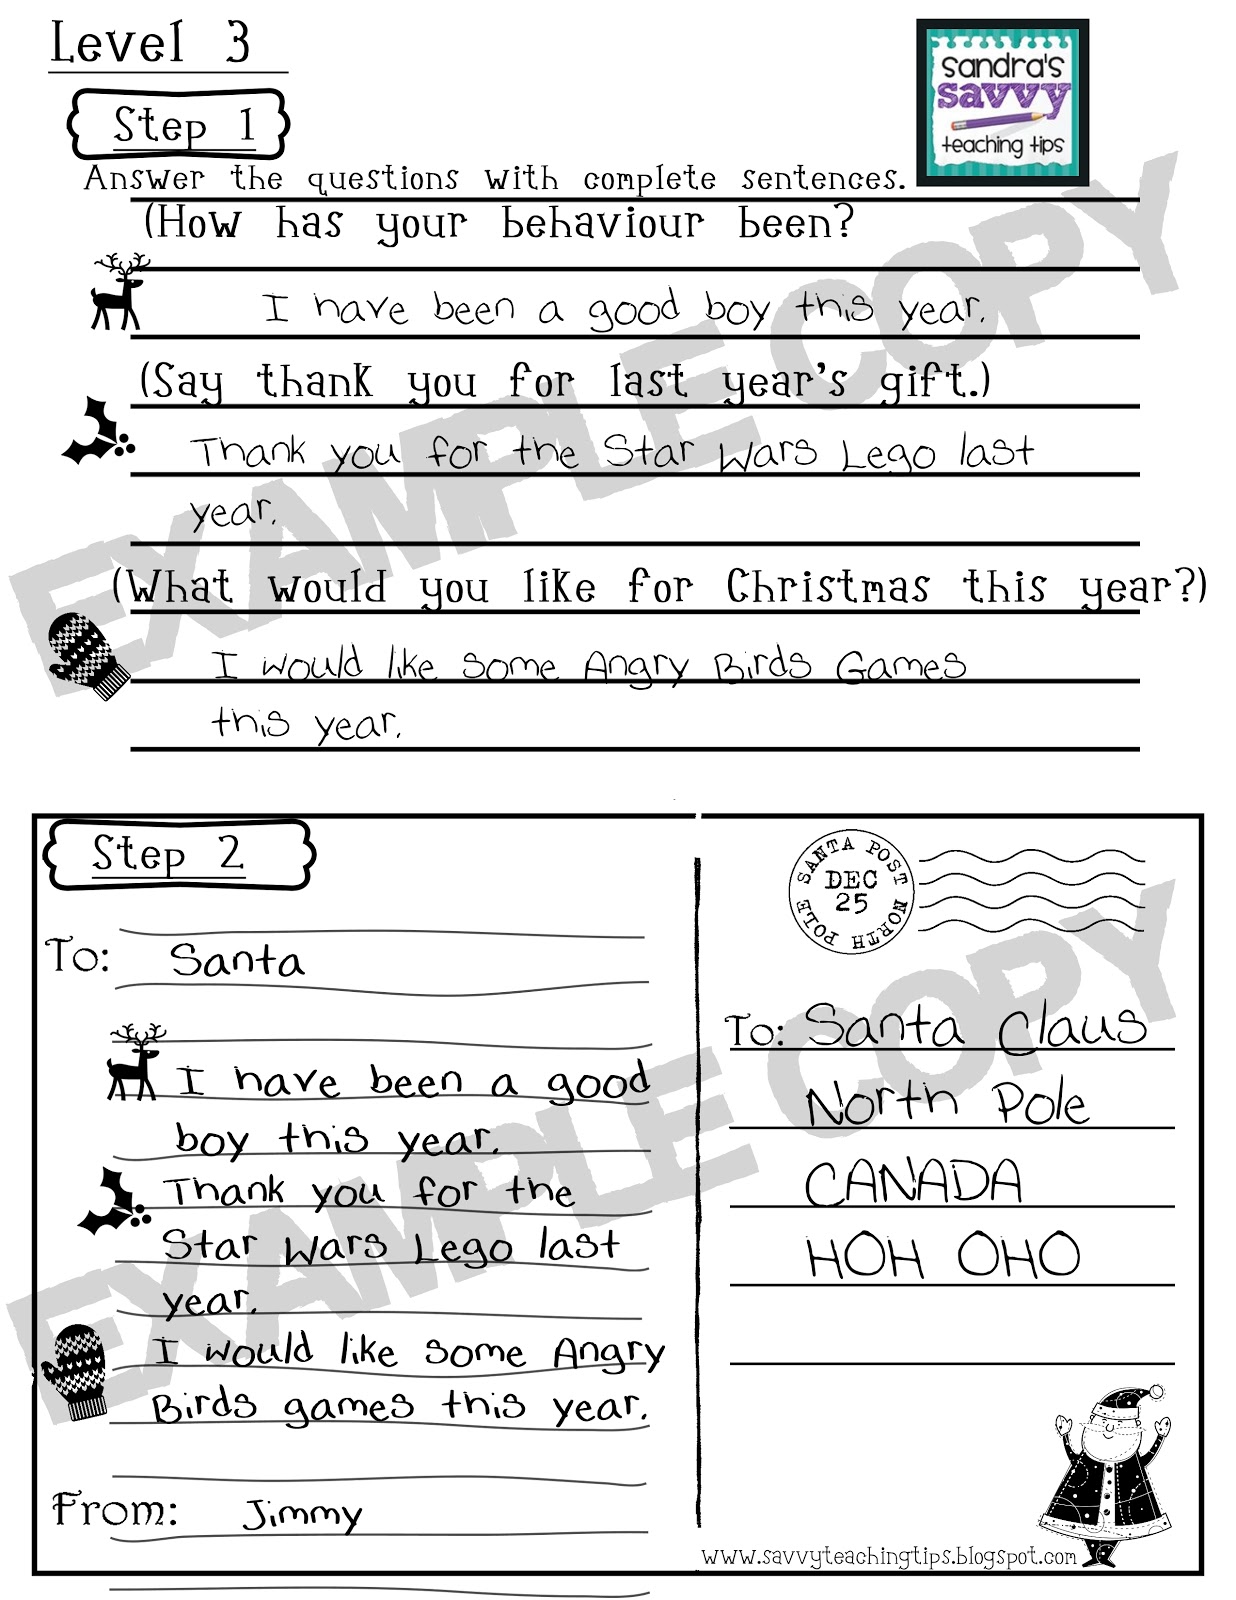 Level 3
sandra's
savvy
teaching tips
Step 1
Answer the questions with complete sentences.
(How has your behaviour been?
I have been a good boy this year.
(Say thank you for last year's gift.)
Thank you for the Star Wars Lego last
year.
(What would you like for Christmas this year?)
I would like some Angry Birds Games
this year.
EXAMPLE COPY
Step 2
To: Santa
I have been a good
boy this year.
Thank you for the
Star Wars Lego last
year.
I would like some Angry
Birds games this year.
From: Jimmy
SANTA POST NORTH POLE
DEC
25
To: Santa Claus
North Pole
CANADA
HOH OHO
www.savvyteachingtips.blogspot.com
EXAMPLE COPY